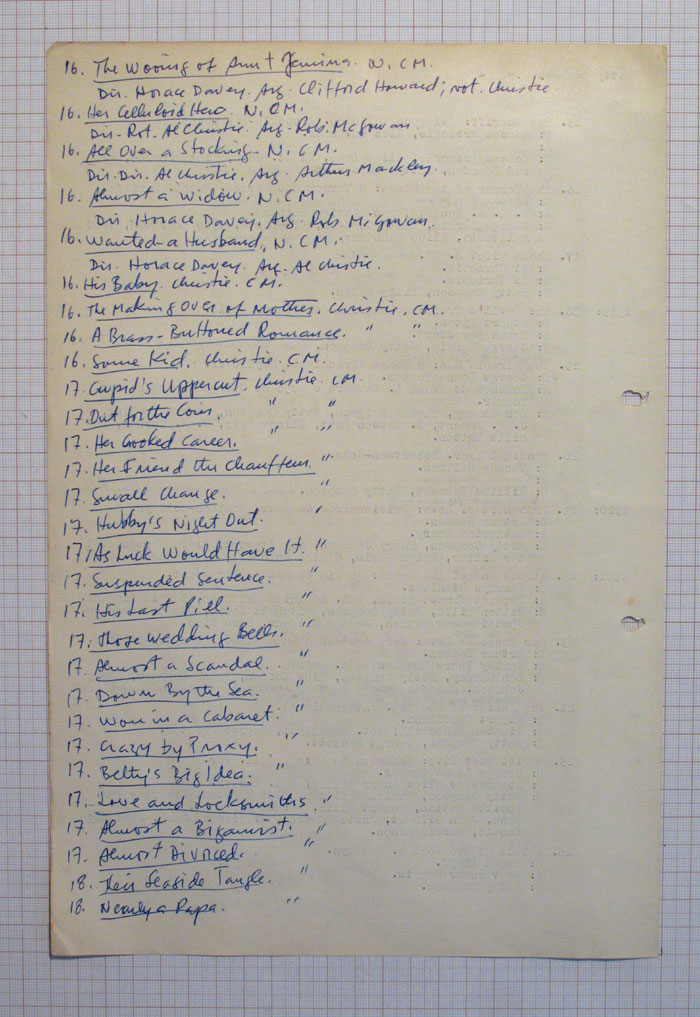 16. The Wooing of Aunt Jemima. N. C.M.
Dir. Horace Davey. Arg. Clifford Howard; not. Christie
16. Her Celluloid Hero. N. C.M.
Dir. Al Christie. Arg. Rob. McGowan
16. All Over a Stocking - N. C. M.
Dir. Dir. Al Christie. Arg. Arthur Mackley.
16. Almost a Widow. N. C M.
Dir. Horace Davey. Arg. Rob. McGowan.
16. Wanted-a Husband, N. C M.
Dir. Horace Davey. Arg. Al Christie.
16. His Baby. Christie. C M.
16. The Making Over of Mother. Christie. C M.
16. A Brass-Buttoned Romance. " "
16. Some Kid. Christie. C M.
17. Cupid's Uppercut. Christie. C M
17. Out for the Coin. " "
17. Her Crooked Career. " "
17. Her Friend the Chauffeur. "
17. Small Change. "
17. Hubby's Night Out. "
17. As Luck Would Have It. "
17. Suspended Sentence. "
17. His Last Pill. "
17. Those Wedding Bells. "
17. Almost a Scandal. "
17. Down By the Sea. "
17. Won in a Cabaret. "
17. Crazy by Proxy. "
17. Betty's Big Idea. "
17. Love and Locksmiths. "
17. Almost a Bigamist. "
17. Almost Divorced. "
18. Their Seaside Tangle. "
18. Nearly a Papa. "